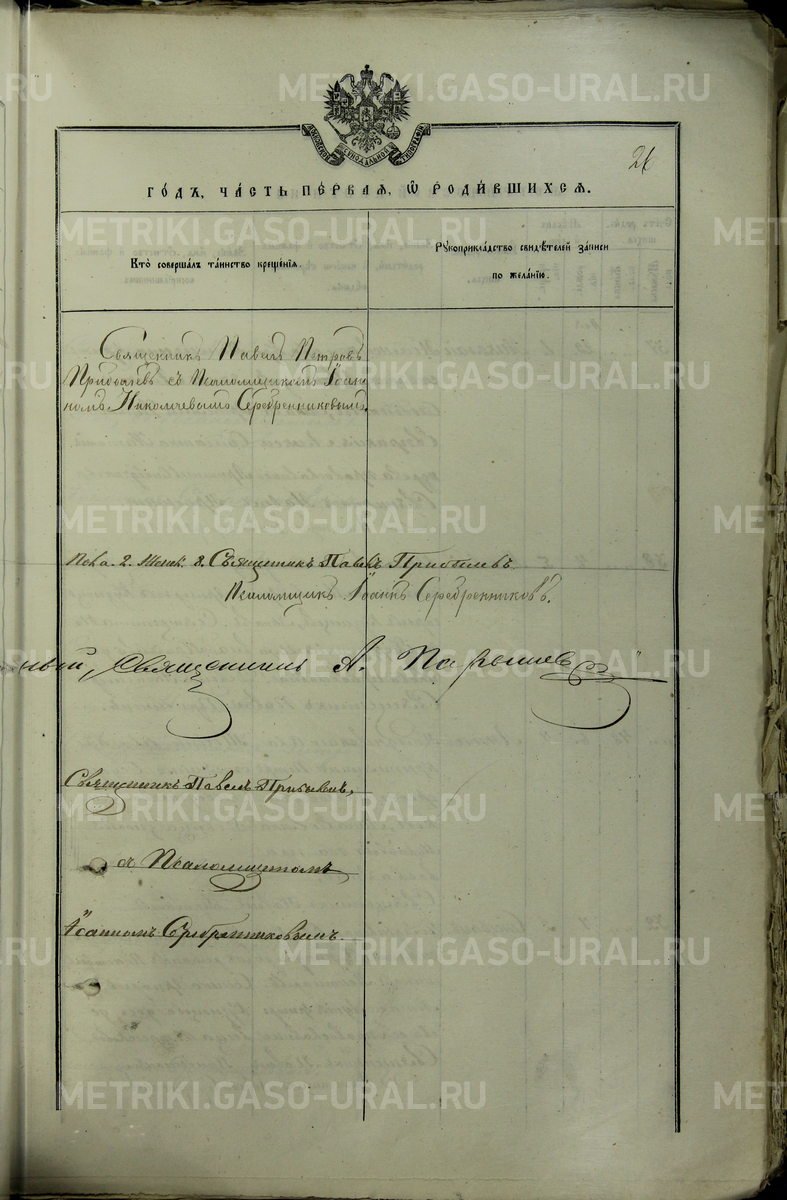 METRIKI.GASO-URAL.RU
26
ГО́ДЪ, ЧА́СТЬ ПЕ́РВАЯ, Ѡ҆ РОДИ́ВШИХСЯ.
Кто̀ соверша́лъ та́инство креще́нїѧ.
Рꙋкоприкла́дство свидѣ́телей за́писи
по жела́нїю.
Священникъ Павелъ Петровъ
Прибылевъ съ Псаломщикомъ Іоан
номъ Николаевымъ Серебренниковымъ.
2. Женск. 8. Священникъ Павелъ Прибылевъ.
Псаломщикъ Іоаннъ Серебренниковъ.
Священникъ А.
Священникъ Павелъ Прибылевъ,
съ Псаломщикомъ
Іоанномъ Серебренниковымъ.